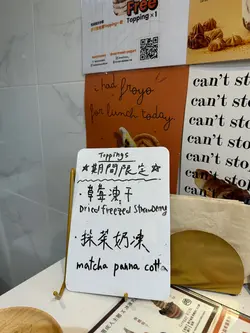 Free
Topping x 1
had froyo
for lunch today
can't stop
can't sto
can't sto
can't st
Toppings
☆期間限定☆
·草莓凍干
Dried freezed Strawberry
·抹茶奶凍
matcha panna cotta